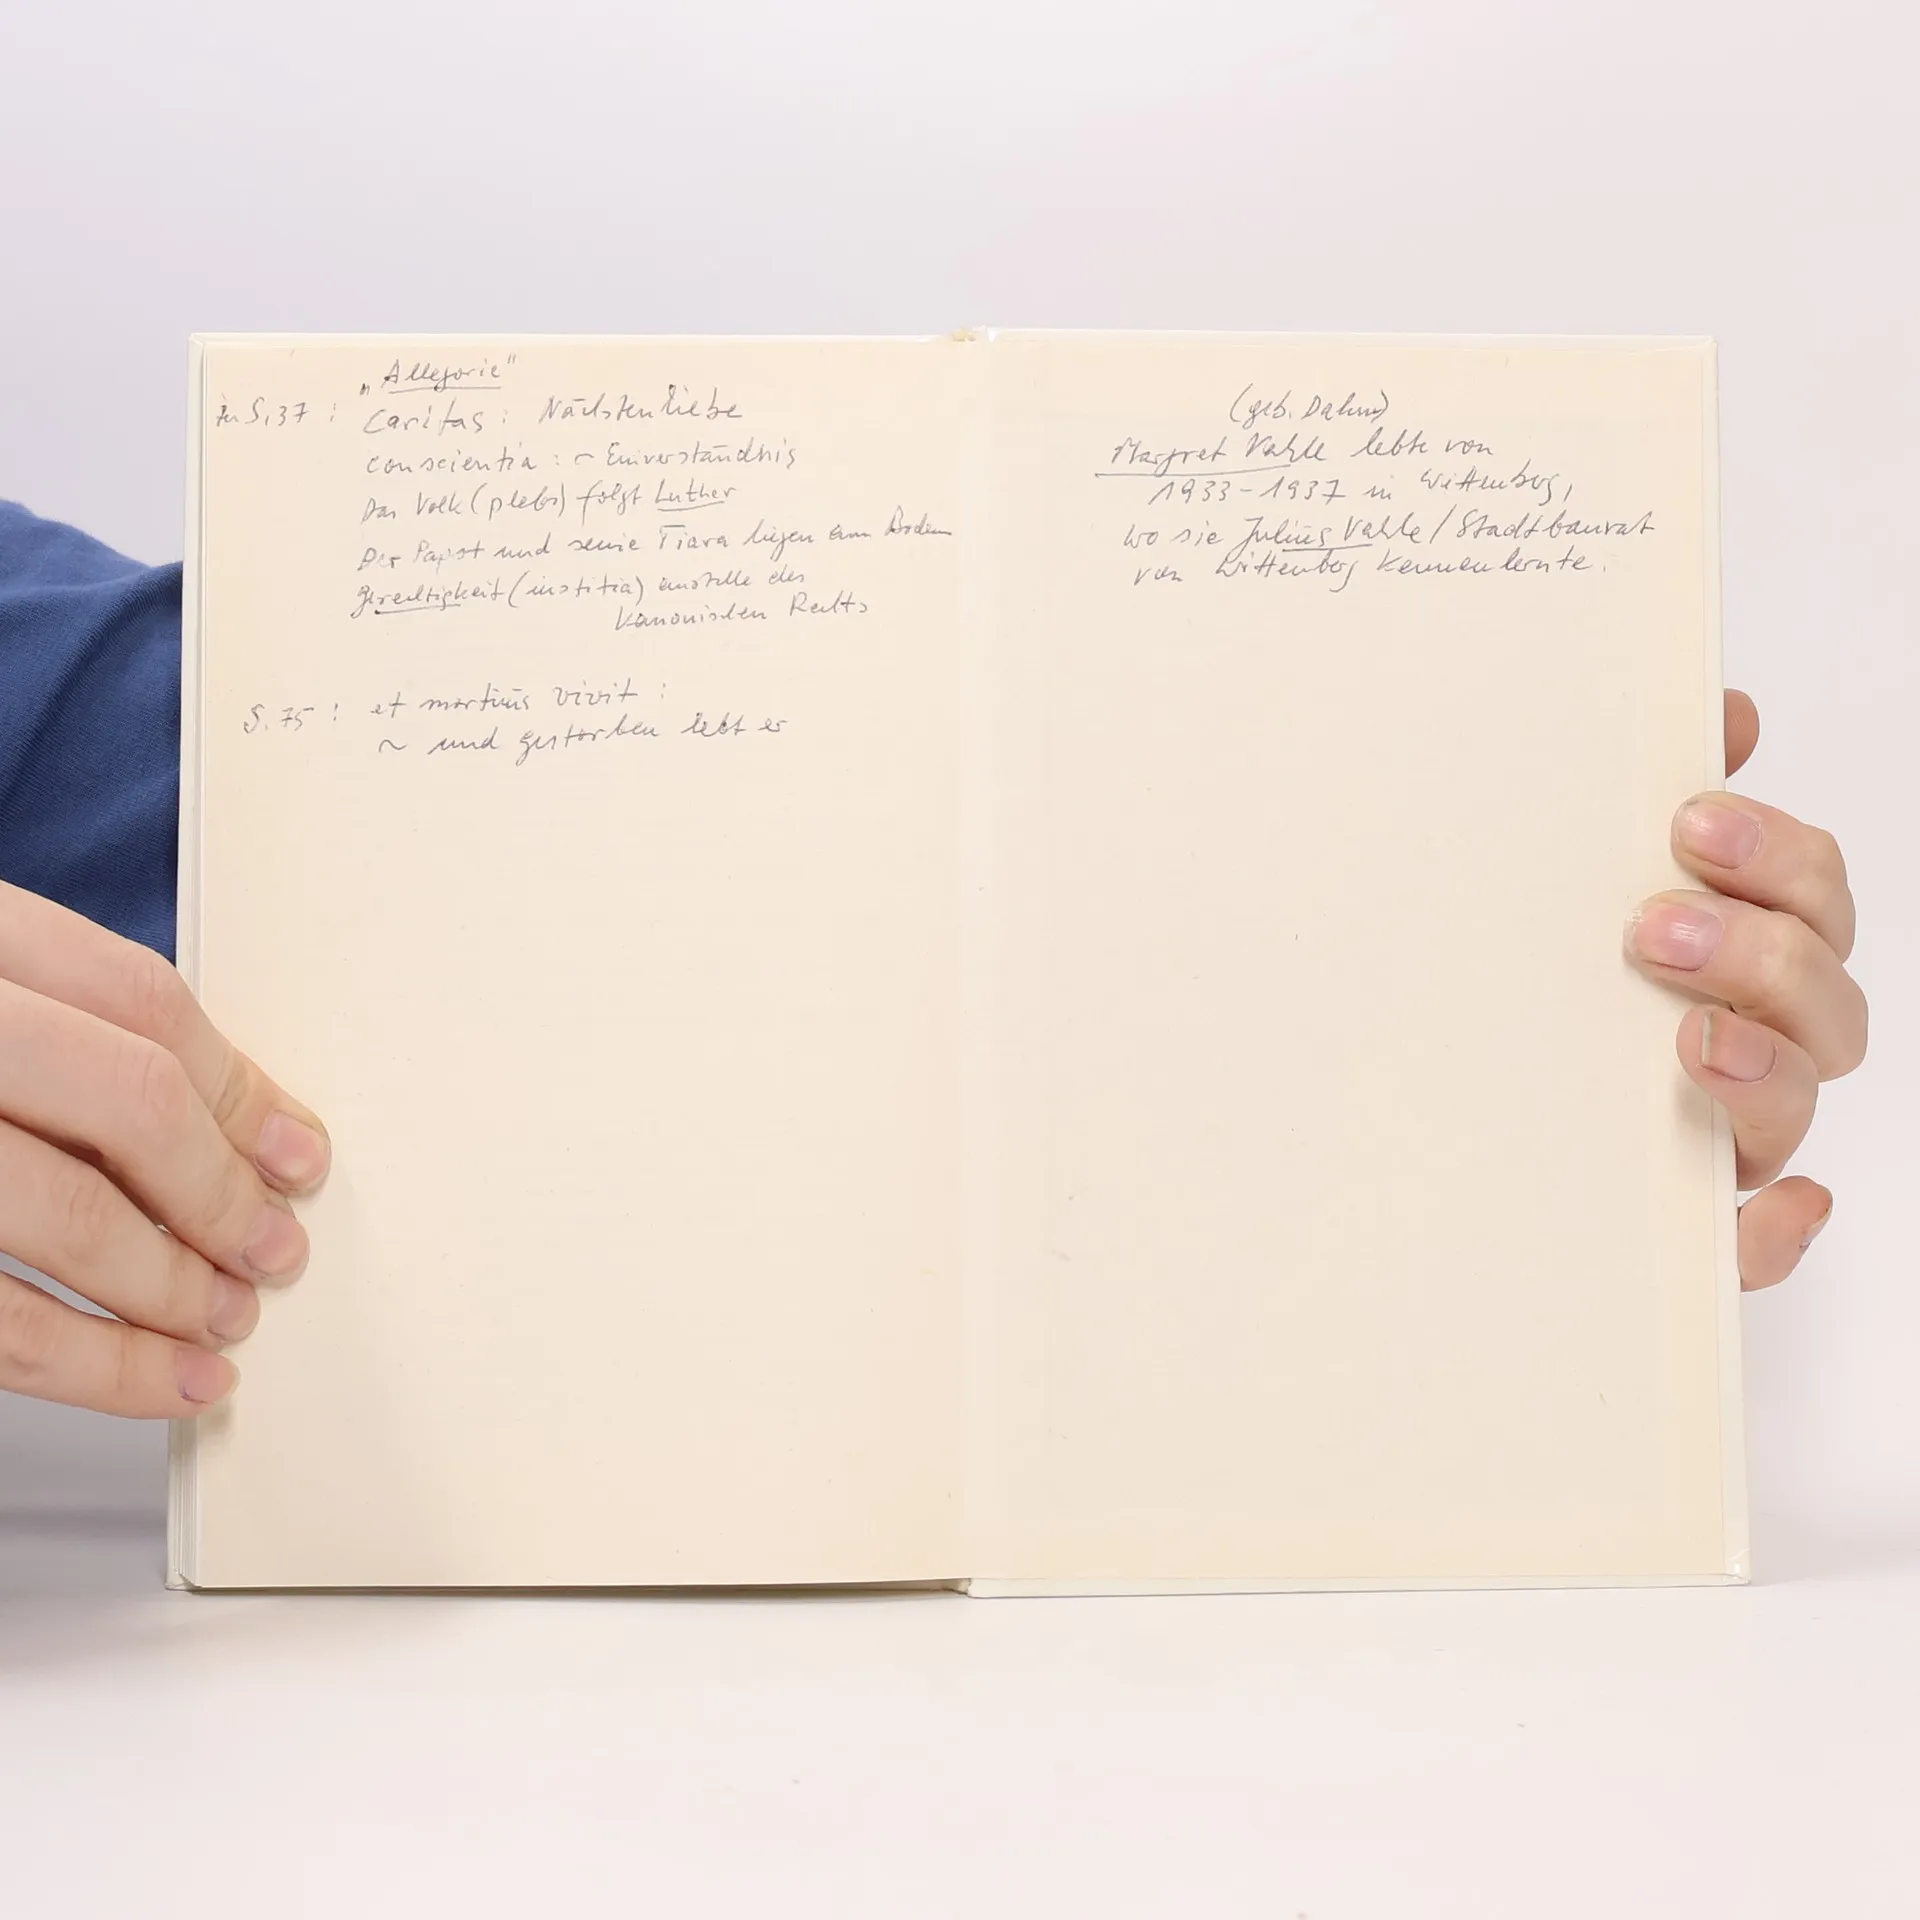 „Allegorie"
zu S. 37 : Caritas : Nächstenliebe
conscientia : ~ Einverständnis
Das Volk (plebs) folgt Luther
Der Papst und seine Tiara liegen am Boden
Gerechtigkeit (iustitia) anstelle des
Kanonischen Rechts
S. 75 : et mortuus vivit :
~ und gestorben lebt er
(geb. Dahm)
Margret Vahle lebte von
1933-1937 in Wittenberg,
wo sie Julius Vahle / Stadtbaurat
von Wittenberg kennenlernte.